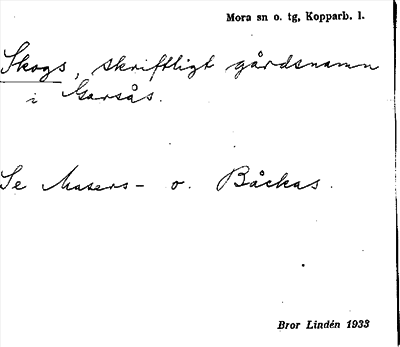 Mora sn o. tg, Kopparb. l.
Skogs, skriftligt gårdsnamn
i Garsås.
Se Masers- o. Båckas.
Bror Lindén 1933